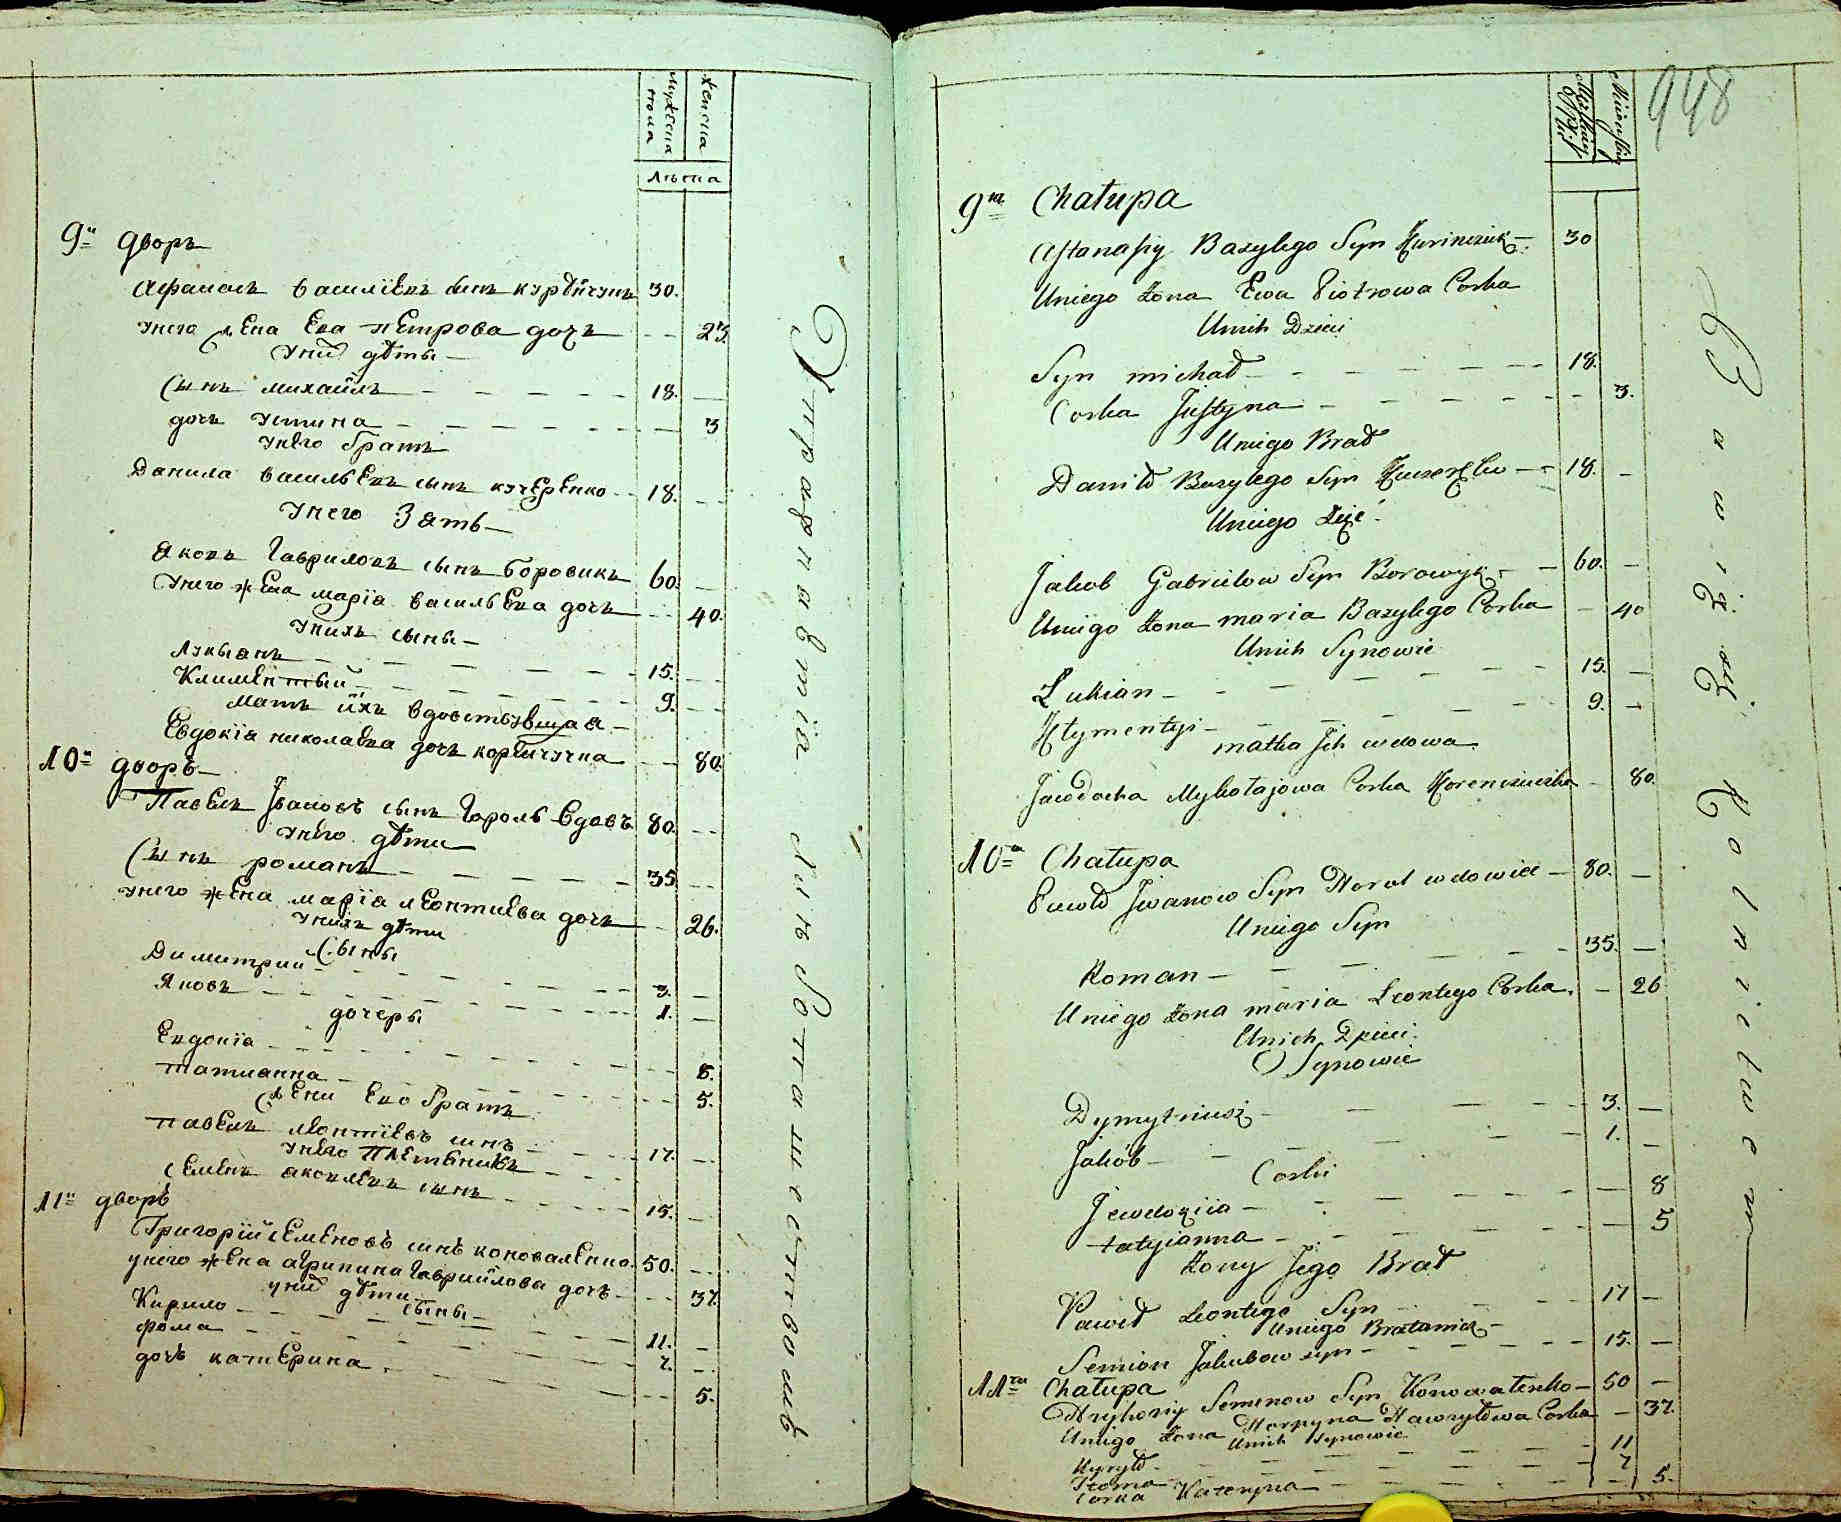 мужеска
пола
женска
лѣта
9й дворъ
Афанасъ василіевъ сынъ курѣнчукъ 30.
унего жена Ева петрова дочь 23.
унихъ дѣти
Сынъ михайлъ 18.
дочь устина 3
унего братъ
Данила васильевъ сынъ кучеренко 18.
унего Зять
яковъ Гавриловъ сынъ боровикъ 60.
унего жена марїя васильева дочь 40.
унихъ сыны
Лукьянъ 15.
Климентый 9.
мать ихъ вдовствующая
Евдокїя николаева дочь корѣнчучка 80.
10й дворъ
Павелъ Івановъ сынъ Гороль вдовъ 80.
унего дѣти
Сынъ романъ 35
унего жена марїя леонтиева дочь 26.
унихъ дѣти
Сыны
Димитрий 3.
Яковъ 1.
дочеры
Евдокїа 8.
татианна 5.
жены Его братъ
павелъ леонтїевъ сынъ 17.
унего Племѣникъ
семенъ яковлевъ сынъ 15.
11й дворъ
Григорїй семеновъ синъ коноваленко 50.
унего жена агрипина Гавриилова дочь 37.
унихъ дѣти
сыны
Кирило 11.
фома 7.
дочь катерина 5.
948
9ta Chałupa
Aftanasiy Bazylego Syn Kurinczuk 30
Uniego Żona Ewa Piotrowa Corka
Unich Dzieci
Syn michał 18.
Corka Justyna 3.
Uniego Brat
Danił Bazylego Syn 18.
Uniego Zięć
Jakob Gabrielow Syn Borowyk 60.
Uniego Żona maria Bazylego Corka 40
Unich Synowie
Lukian 15.
Kłymentyi 9.
matka Jch wdowa
Jawdocha Mykołajowa Corka Korenczuczka 80.
10ta Chałupa
Paweł Jwanow Syn Horol wdowiec 80.
Uniego Syn
Roman 35.
Uniego Żona maria Leontego Corka 26
Unich Dzieci
Synowie
Dymytriusz 3.
Jakób 1.
Corki
Jewdokiia 8
tatyianna 5
Żony Jego Brat
Paweł Leontego Syn 17
Uniego Bratanicz
Semion Jakubow syn 15.
11ta Chałupa
Hryhoriy Semenow Syn Konowalenko 50
Uniego Żona Horpyna Hawryłowa Corka 37.
Unich synowie
Kyryło 11
Homa 7
Corka Kateryna 5.